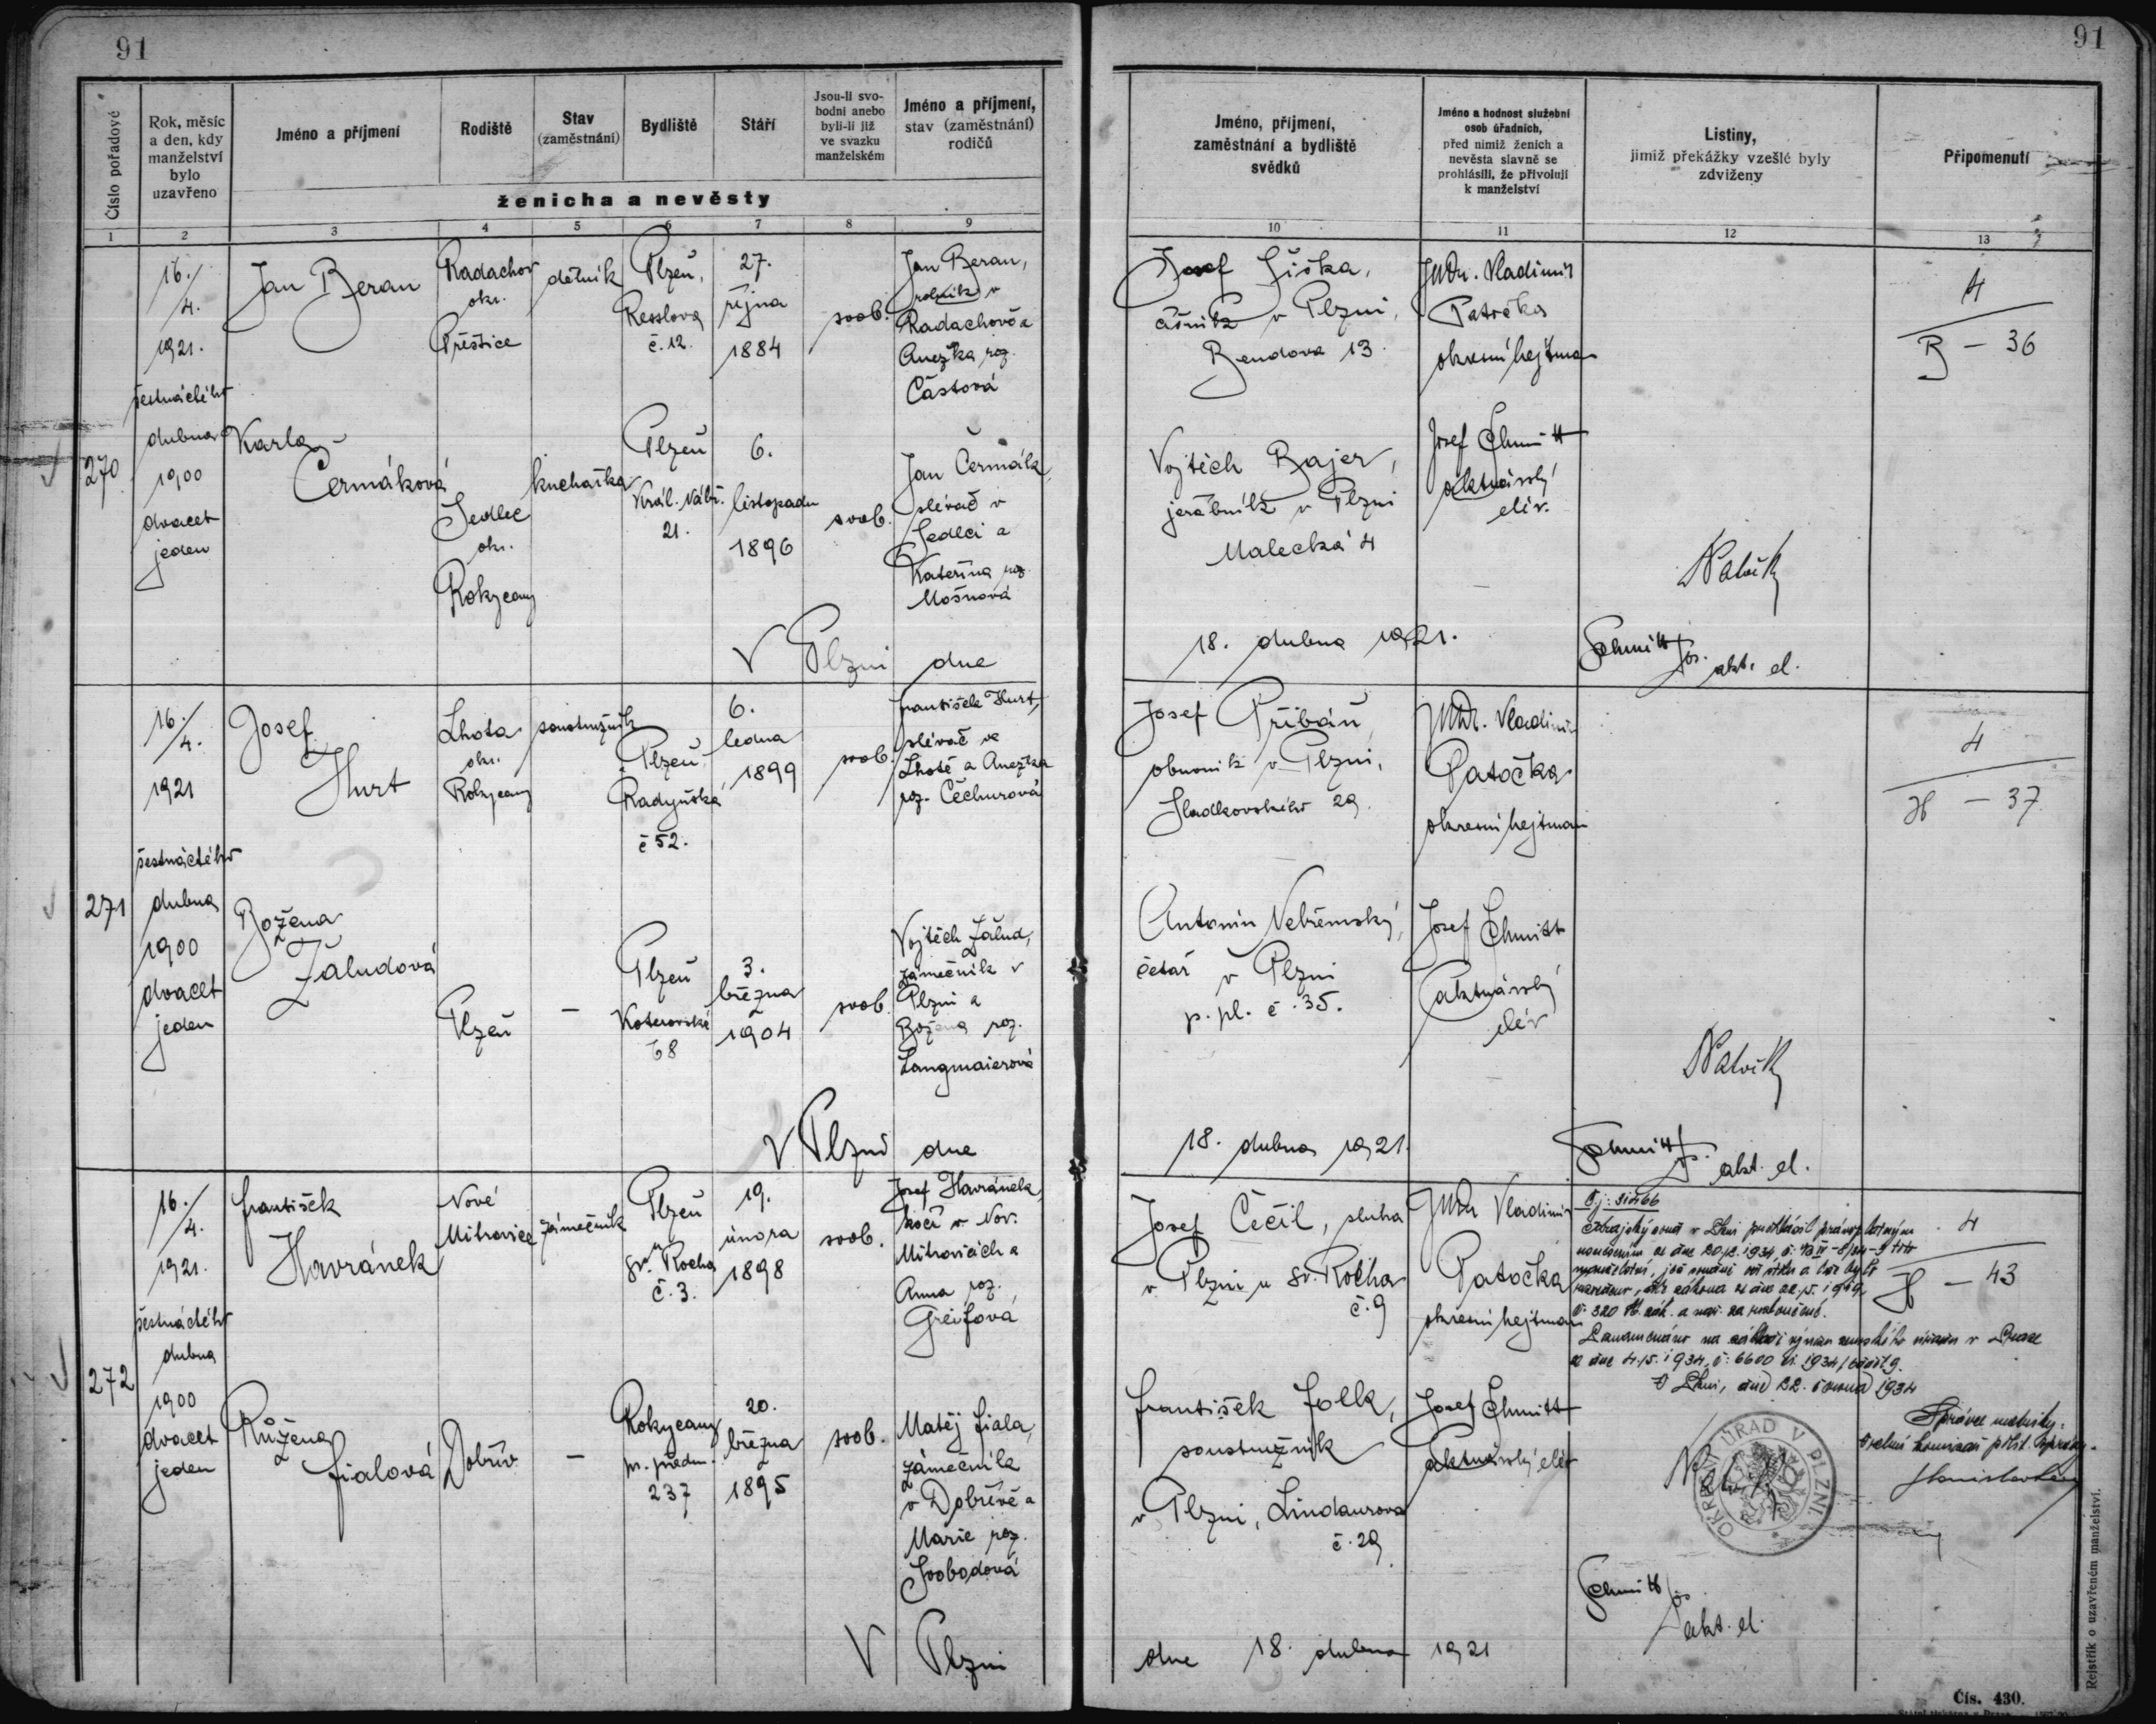 91
91
Číslo pořadové
Rok, měsíc
a den, kdy
manželství
bylo
uzavřeno
Jméno a příjmení
Rodiště
Stav
(zaměstnání)
Bydliště
Stáří
Jsou-li svo-
bodni anebo
byli-li již
ve svazku
manželském
Jméno a příjmení,
stav (zaměstnání)
rodičů
ženicha a nevěsty
Jméno, příjmení,
zaměstnání a bydliště
svědků
Jméno a hodnost služební
osob úředních,
před nimiž ženich a
nevěsta slavně se
prohlásili, že přivolují
k manželství
Listiny,
jimiž překážky vzešlé byly
zdviženy
Připomenutí
1
2
3
4
5
6
7
8
9
10
11
12
13
270
16./
4.
1921.
šestnáctého
dubna
1900
dvacet
jeden
Jan Beran
Radachov
okr.
Přeštice
dělník
Plzeň,
Resslova
č. 12.
27.
října
1884
svob.
Jan Beran,
rolník v
Radachově a
Anežka roz.
Částová
Josef Šiška,
číšník v Plzni,
Bendova 13.
JUDr. Vladimír
Patočka
okresní hejtman
4
B - 36
Karla
Čermáková
Sedlec
okr.
Rokycany
kuchařka
Plzeň
Král. nábř.
21.
6.
listopadu
1896
svob.
Jan Čermák,
slévač v
Sedlci a
Kateřina roz.
Mošnová
Vojtěch Bajer,
jeřábník v Plzni
Malecká 4
Josef Schmitt
aktuárský
elév.
V Plzni dne
18. dubna 1921.
Schmitt Jos.
akt. el.
271
16./
4.
1921
šestnáctého
dubna
1900
dvacet
jeden
Josef
Hurt
Lhota
okr.
Rokycany
soustružník
Plzeň,
Radyňská
č 52.
6.
ledna
1899
svob.
František Hurt,
slévač ve
Lhotě a Anežka
roz. Čechurová
Josef Přibáň,
obuvník v Plzni,
Sladkovského 29.
JUDr. Vladimír
Patočka
okresní hejtman
4
H - 37
Božena
Žaludová
Plzeň
—
Plzeň
Koterovská
68
3.
března
1904
svob.
Vojtěch Žalud,
zámečník v
Plzni a
Božena roz.
Langmaierová
Antonín
četař v Plzni
p. pl. č. 35.
Josef Schmitt
aktuárský
elév
V Plzni dne
18. dubna 1921.
Schmitt Js.
akt. el.
272
16./
4.
1921.
šestnáctého
dubna
1900
dvacet
jeden
František
Havránek
Nové
Mitrovice
zámečník
Plzeň
u
sv. Rocha
č. 3.
19.
února
1898
svob.
Josef Havránek,
kočí v Nov.
Mitrovicích a
Anna roz.
Greifová
Josef Čečil, sluha
v Plzni u sv. Rocha
č. 9
JUDr Vladimír
Patočka
okresní hejtman
4
H - 43
ze dne 4./5. 1934, č: 6600
V Plzni, dne 22. 1934
Správce matriky:
Růžena
Fialová
Dobřív
—
Rokycany
pr. předm.
237
20.
března
1895
svob.
Matěj Fiala,
zámečník
v Dobřívě a
Marie roz.
Svobodová
František Folk,
soustružník
v Plzni, Lindaurova
č. 29
Josef Schmitt
aktuárský elév
OKRESNÍ ÚŘAD V PLZNI
Schmitt Jos
akt. el.
V Plzni
dne 18. dubna 1921
Rejstřík o uzavřeném manželství.
Čís. 430.